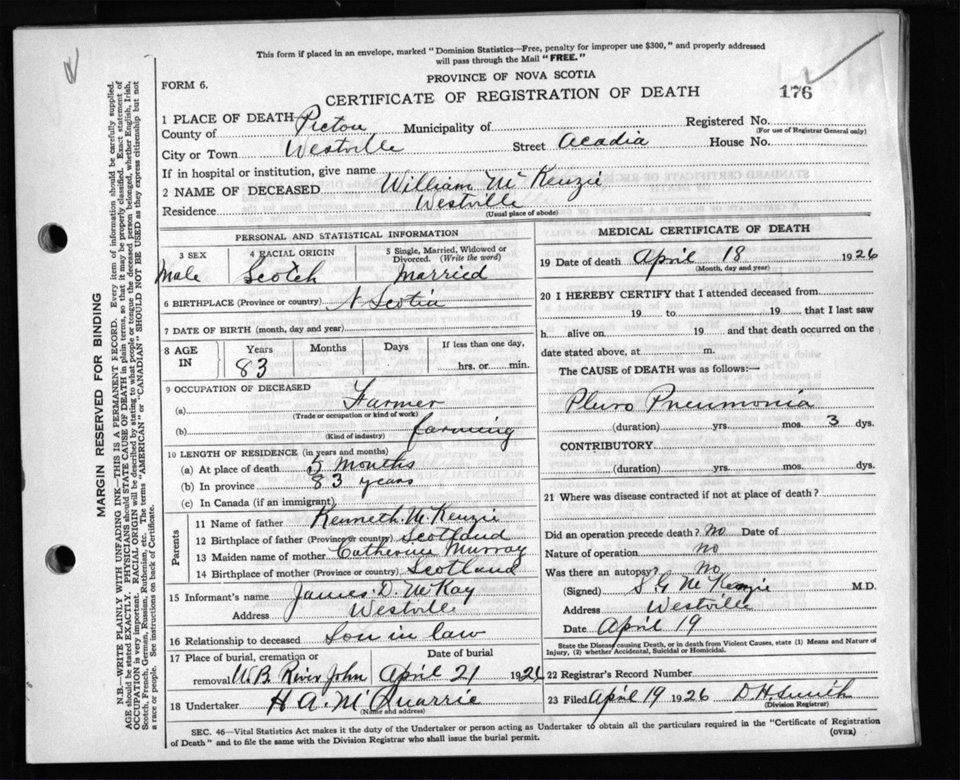 This form if placed in an envelope, marked "Dominion Statistics—Free, penalty for improper use $300," and properly addressed
will pass through the Mail "FREE."
PROVINCE OF NOVA SCOTIA
FORM 6.
CERTIFICATE OF REGISTRATION OF DEATH
176
1 PLACE OF DEATH
County of Pictou Municipality of Registered No.
(For use of Registrar General only)
City or Town Westville Street Acadia House No.
If in hospital or institution, give name
2 NAME OF DECEASED William McKenzie
Residence Westville
(Usual place of abode)
PERSONAL AND STATISTICAL INFORMATION
3 SEX Male
4 RACIAL ORIGIN Scotch
5 Single, Married, Widowed or Divorced. (Write the word) Married
6 BIRTHPLACE (Province or country) N. Scotia
7 DATE OF BIRTH (month, day and year)
8 AGE IN Years Months Days If less than one day,
83 hrs. or min.
9 OCCUPATION OF DECEASED
(a) Farmer
(Trade or occupation or kind of work)
(b) farming
(Kind of industry)
10 LENGTH OF RESIDENCE (in years and months)
(a) At place of death 5 Months
(b) In province 83 years
(c) In Canada (if an immigrant)
Parents
11 Name of father Kenneth McKenzie
12 Birthplace of father (Province or country) Scotland
13 Maiden name of mother Catherine Murray
14 Birthplace of mother (Province or country) Scotland
15 Informant's name James D. McKay
Address Westville
16 Relationship to deceased Son in law
17 Place of burial, cremation or removal W.B. River John
Date of burial April 21 1926
18 Undertaker H A McQuarrie
(Name and address)
MEDICAL CERTIFICATE OF DEATH
19 Date of death April 18 1926
(Month, day and year)
20 I HEREBY CERTIFY that I attended deceased from
19 to 19 , that I last saw
h alive on 19 and that death occurred on the
date stated above, at m.
The CAUSE of DEATH was as follows:—
Pluro Pneumonia
(duration) yrs. mos. 3 dys.
CONTRIBUTORY
(duration) yrs. mos. dys.
21 Where was disease contracted if not at place of death?
Did an operation precede death? No Date of
Nature of operation No
Was there an autopsy? No
(Signed) S G McKenzie M.D.
Address Westville
Date April 19
State the Disease causing Death, or in death from Violent Causes, state (1) Means and Nature of
Injury, (2) whether Accidental, Suicidal or Homicidal.
22 Registrar's Record Number
23 Filed April 19 1926 D H. Smith
(Division Registrar)
SEC. 46—Vital Statistics Act makes it the duty of the Undertaker or person acting as Undertaker to obtain all the particulars required in the "Certificate of Registration
of Death" and to file the same with the Division Registrar who shall issue the burial permit.
(OVER)
MARGIN RESERVED FOR BINDING
N.B.—WRITE PLAINLY WITH UNFADING INK—THIS IS A PERMANENT RECORD. Every item of information should be carefully supplied.
AGE should be stated EXACTLY. PHYSICIANS should STATE CAUSE OF DEATH in plain terms, so that it may be properly classified. Exact statement of
OCCUPATION is very important. RACIAL ORIGIN will be described by stating to what people or tongue the deceased person belonged, whether English, Irish,
Scotch, French, German, Russian, Ruthenian, etc. The terms "AMERICAN" or "CANADIAN" SHOULD NOT BE USED as they express citizenship but not
a race or people. See instructions on back of Certificate.